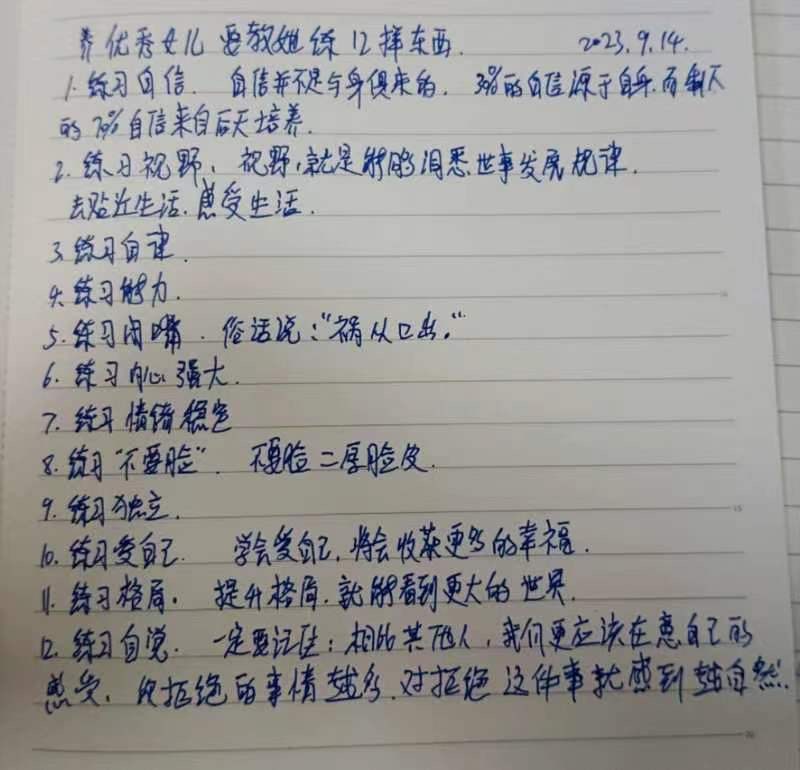 养优秀女儿要教她练12样东西. 2023.9.14.
1. 练习自信. 自信并不是与身俱来的. 30%的自信源于自身.而剩下
的70%自信来自后天培养.
2. 练习视野. 视野,就是能够洞悉世事发展规律.
去贴近生活.感受生活.
3. 练习自律.
4. 练习能力.
5. 练习闭嘴. 俗话说:"祸从口出."
6. 练习内心强大.
7. 练习情绪稳定
8. 练习"不要脸". 不要脸=厚脸皮.
9. 练习独立.
10. 练习爱自己. 学会爱自己,将会收获更多的幸福.
11. 练习格局. 提升格局.就能看到更大的世界.
12. 练习自觉. 一定要记住:相比其他人,我们更应该在意自己的
感受, 拒绝的事情越多.对拒绝这件事就感到越自然.